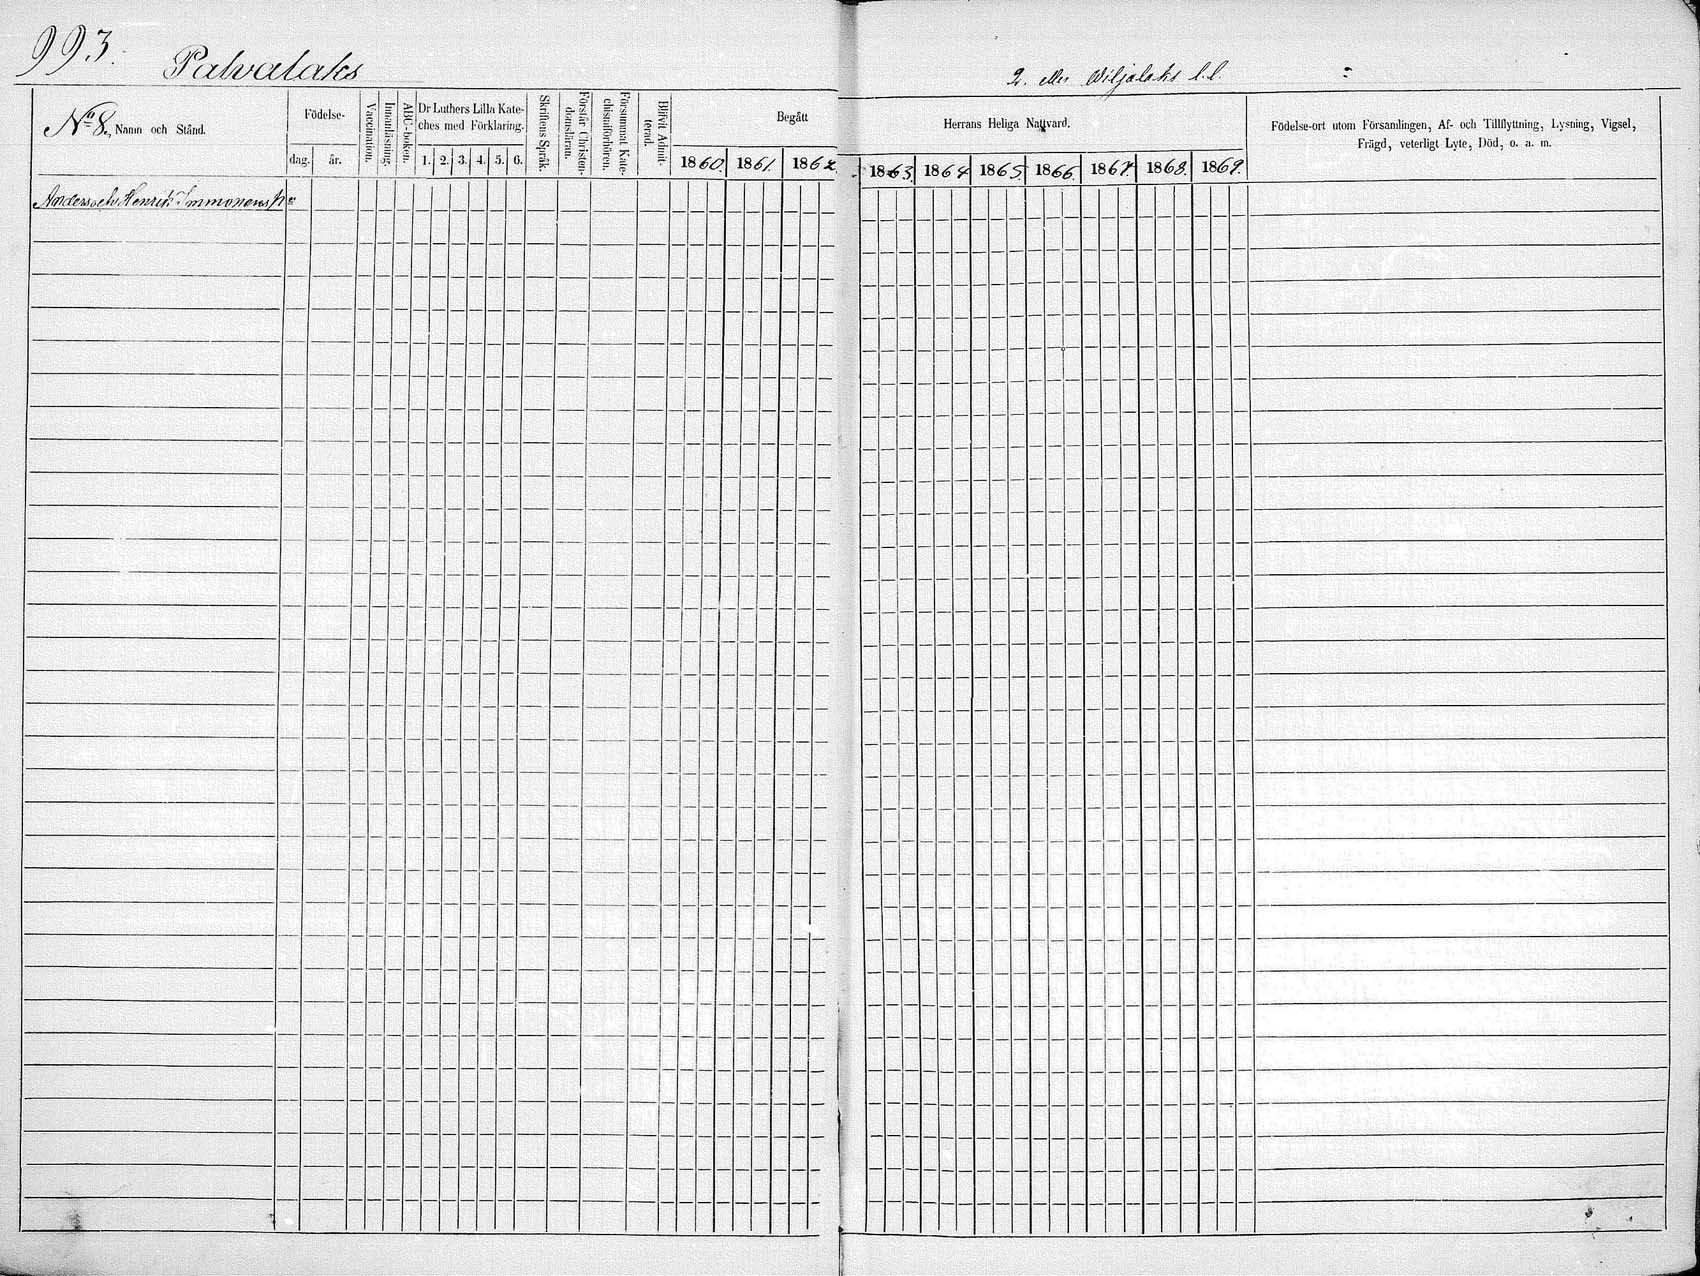 993.
Palvalaks
2. eller Viljalaks l. l.
No 8., Namn och Stånd.
Födelse-
dag. år.
Vaccination.
Innanläsning.
ABC-boken.
Dr Luthers Lilla Kate-
ches med Förklaring.
1. 2. 3. 4. 5. 6.
Skriftens Språk.
Förstår Christen-
domsläran.
Försummat Kate-
chismiförhören.
Blifvit Admit-
terad.
Begått
1860. 1861. 1862.
Herrans Heliga Nattvard.
1863. 1864 1865. 1866. 1867. 1868. 1869.
Födelse-ort utom Församlingen, Af- och Tillflyttning, Lysning, Vigsel,
Frägd, veterligt Lyte, Död, o. a. m.
Anders och Henrik Immonens